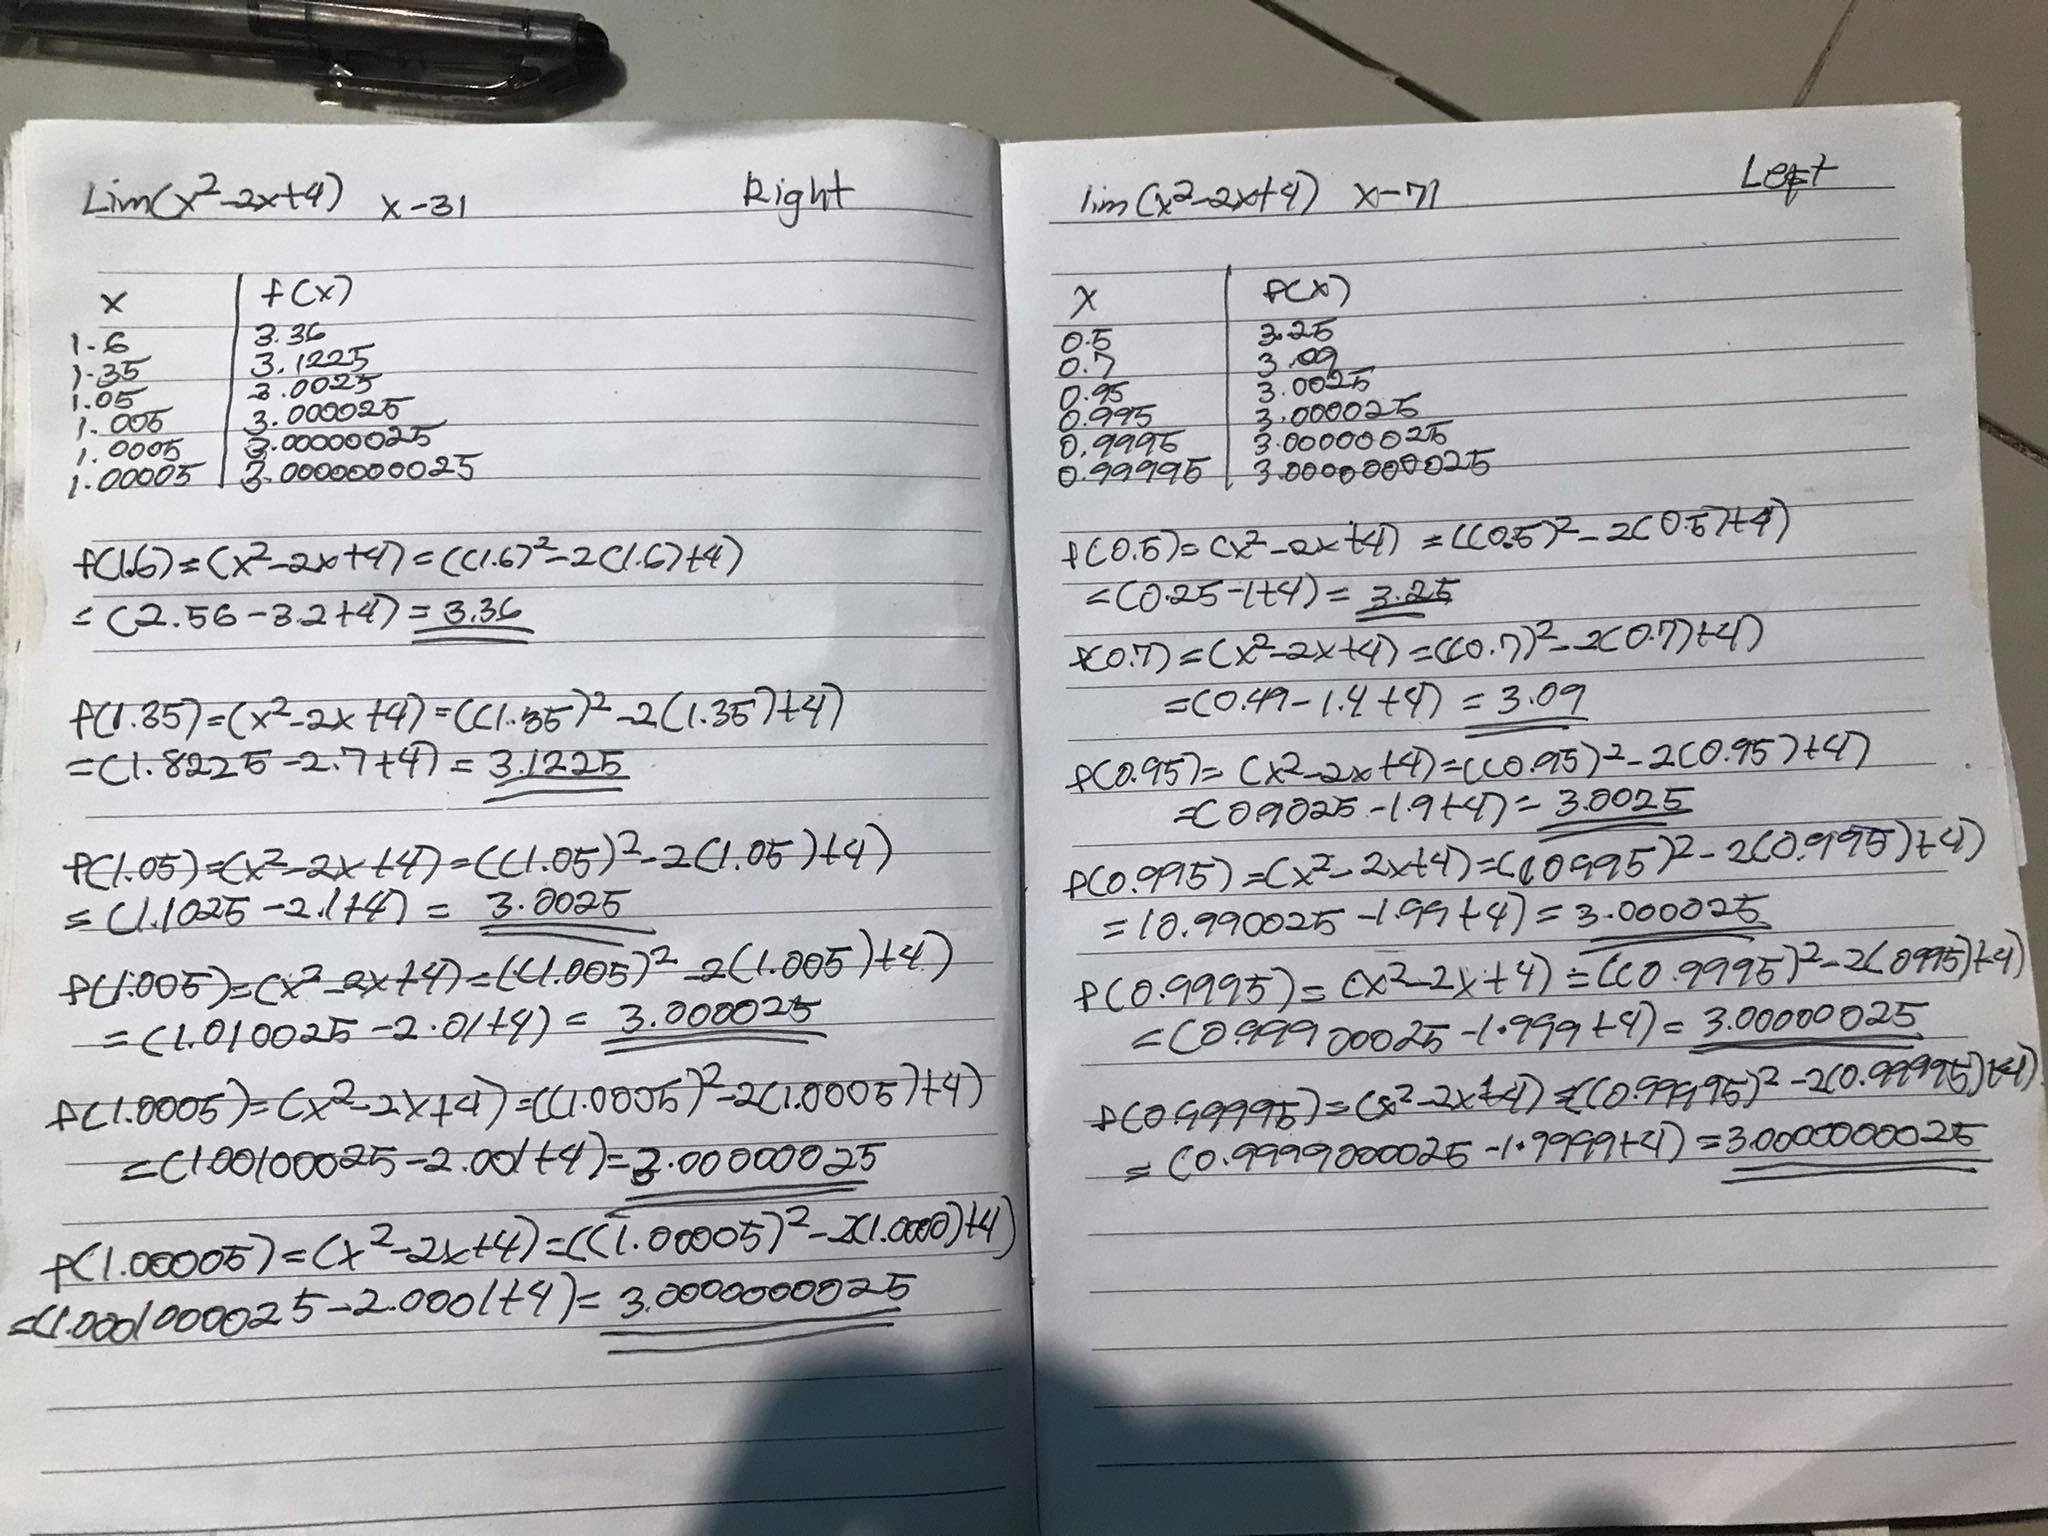 Lim(x²-2x+4) x-31 Right
x f(x)
1.6 3.36
1.35 3.1225
1.05 3.0025
1.005 3.000025
1.0005 3.00000025
1.00005 3.0000000025
f(1.6)=(x²-2x+4)=((1.6)²-2(1.6)+4)
=(2.56-3.2+4)=3.36
f(1.35)=(x²-2x+4)=((1.35)²-2(1.35)+4)
=(1.8225-2.7+4)=3.1225
f(1.05)=(x²-2x+4)=((1.05)²-2(1.05)+4)
=(1.1025-2.1+4)=3.0025
f(1.005)=(x²-2x+4)=((1.005)²-2(1.005)+4)
=(1.010025-2.01+4)=3.000025
f(1.0005)=(x²-2x+4)=((1.0005)²-2(1.0005)+4)
=(1.00100025-2.001+4)=3.00000025
f(1.00005)=(x²-2x+4)=((1.00005)²-2(1.0000)+4)
=(1.0001000025-2.0001+4)=3.0000000025
lim(x²-2x+4) x-71 Left
x f(x)
0.5 3.25
0.7 3.09
0.95 3.0025
0.995 3.000025
0.9995 3.00000025
0.99995 3.0000000025
f(0.5)=(x²-2x+4)=((0.5)²-2(0.5)+4)
=(0.25-1+4)=3.25
f(0.7)=(x²-2x+4)=((0.7)²-2(0.7)+4)
=(0.49-1.4+4)=3.09
f(0.95)=(x²-2x+4)=((0.95)²-2(0.95)+4)
=(0.9025-1.9+4)=3.0025
f(0.995)=(x²-2x+4)=((0.995)²-2(0.995)+4)
=(0.990025-1.99+4)=3.000025
f(0.9995)=(x²-2x+4)=((0.9995)²-2(0995)+4)
=(0.99900025-1.999+4)=3.00000025
f(0.99995)=(x²-2x+4)=((0.99995)²-2(0.99995)+4)
=(0.9999000025-1.9999+4)=3.0000000025